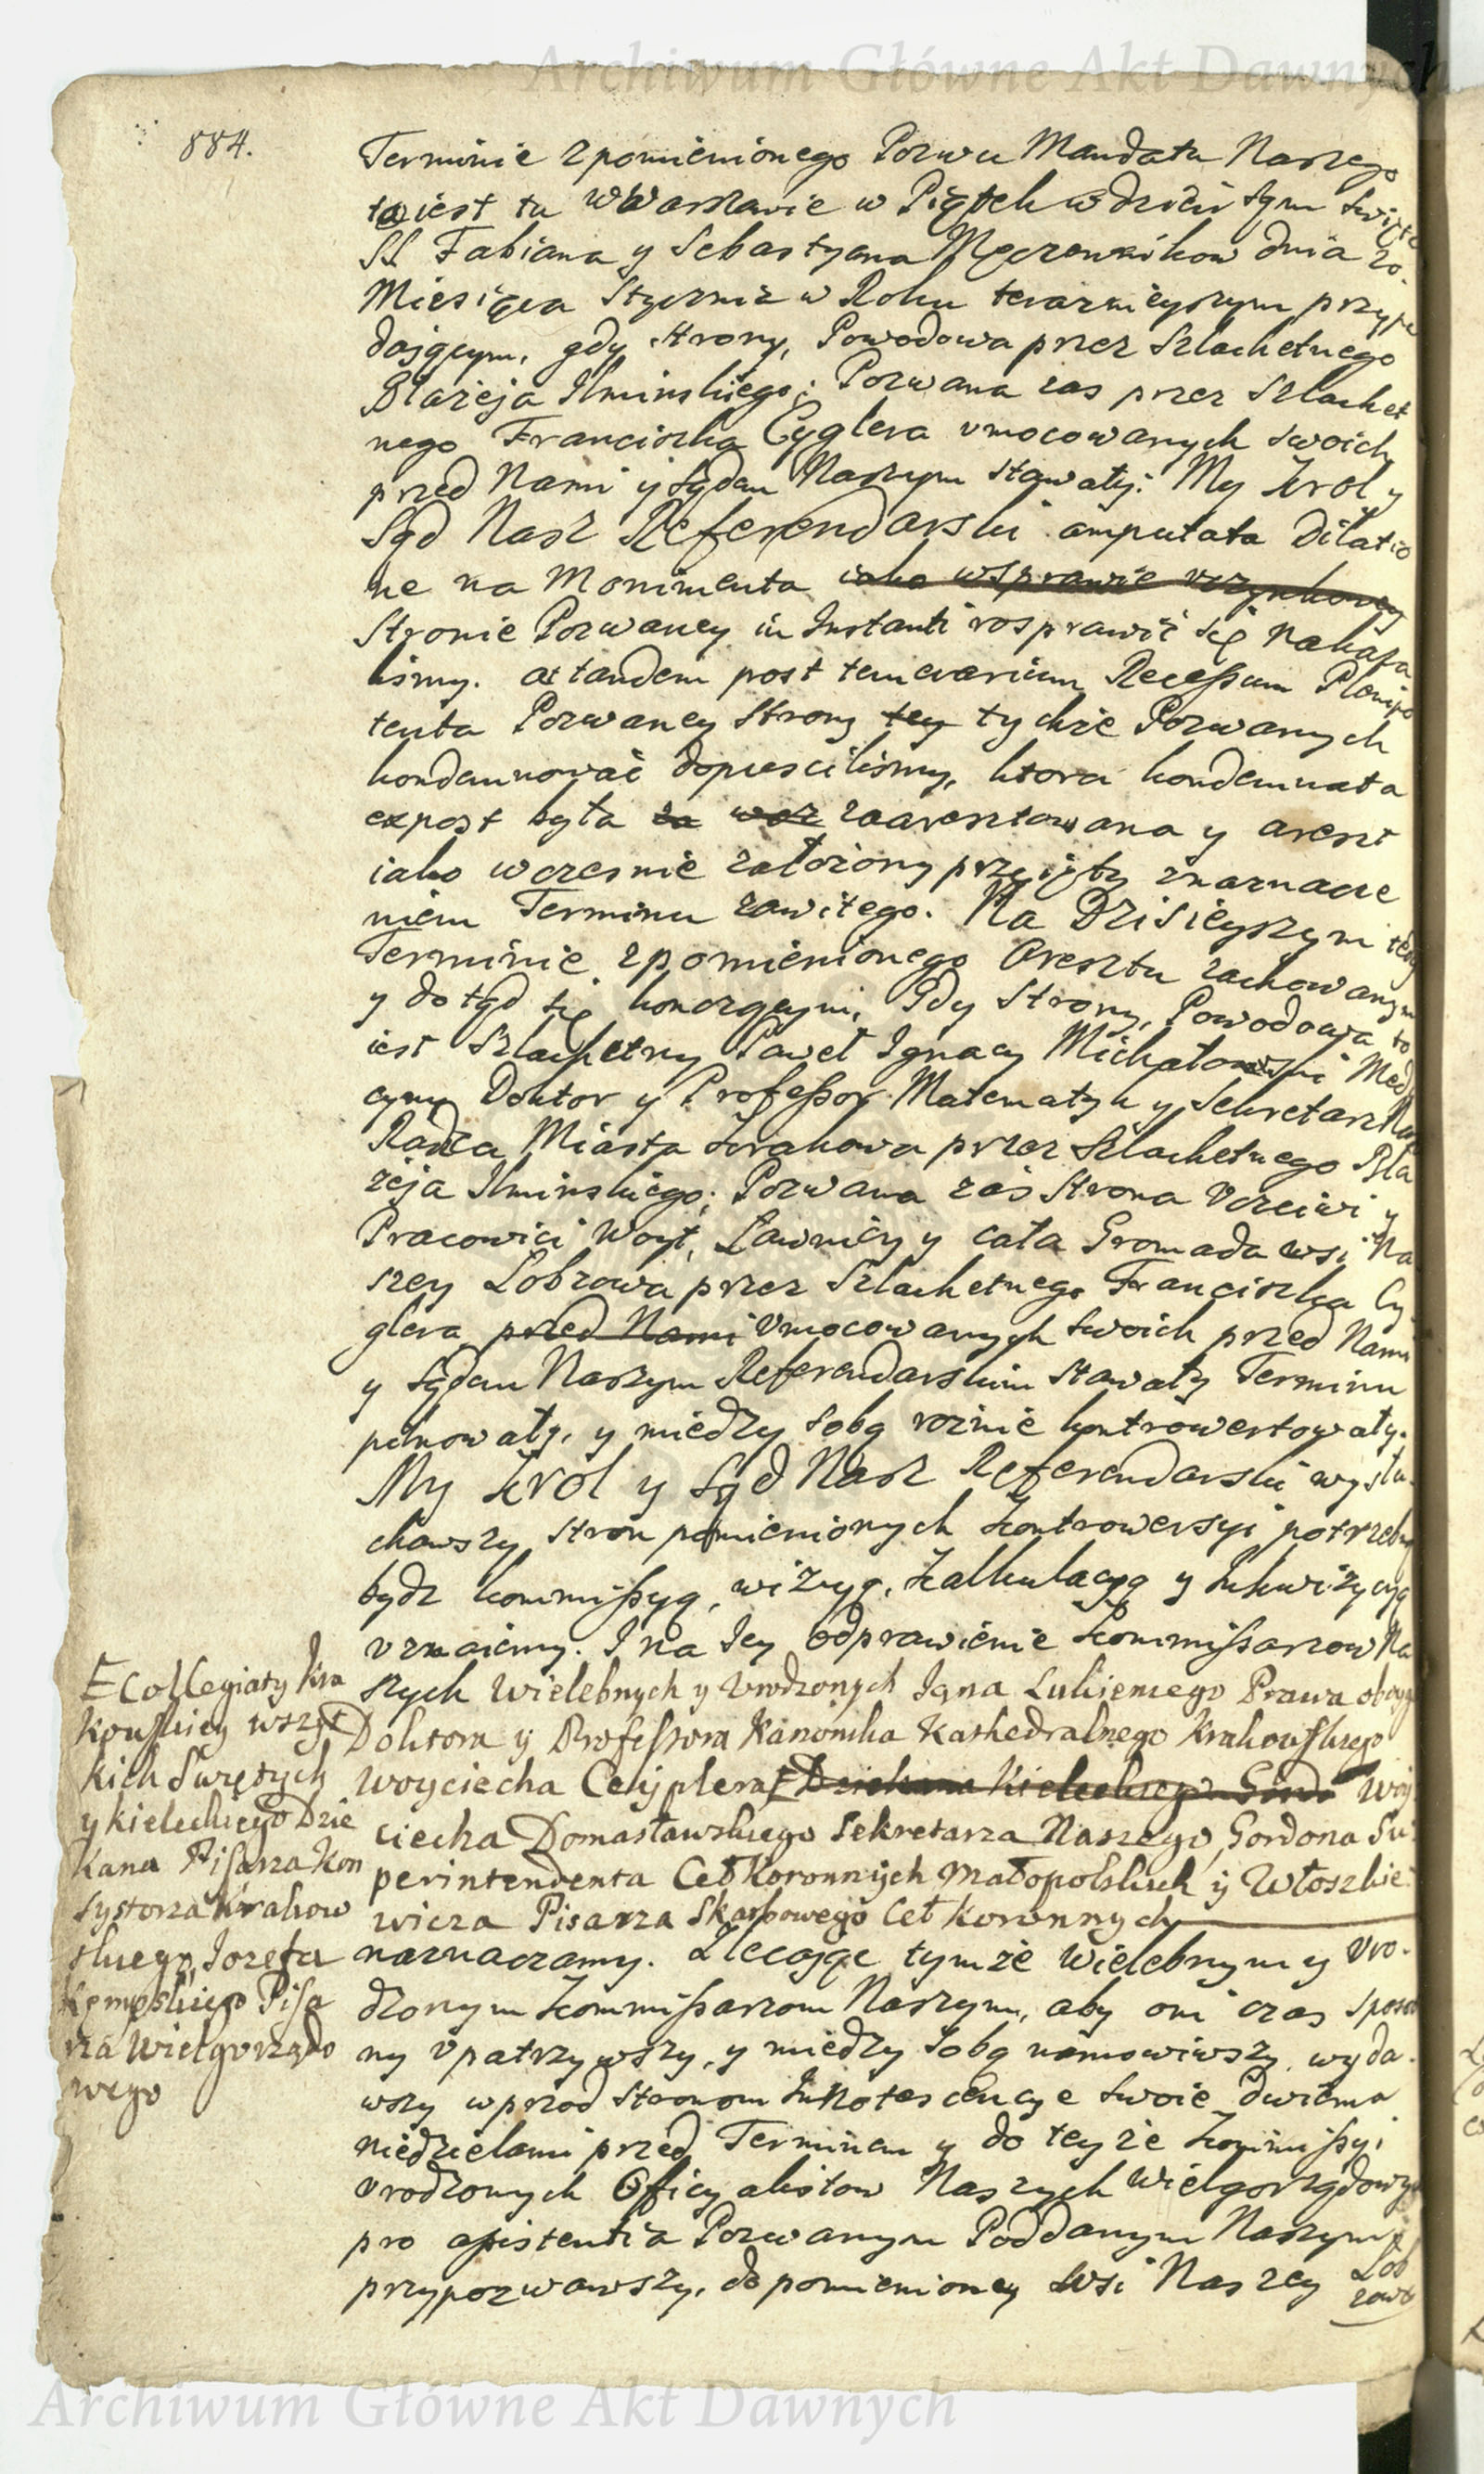 Archiwum Główne Akt Dawnych
884.
Terminie zpomienionego Pozwu Mandatu Naszego
to iest tu w Warszawie w Piątek w dzień sam Swięta
SS Fabiana y Sebastyana Męczennikow dnia 20.
Miesiąca Stycznia w Roku teraznieyszym przypa
daiącym, gdy Strony, Powodowa przez Szlachetnego
Błażeja Ilminskiego; Pozwana zas przez Szlachet
nego Franciszka Cyglera vmocowanych swoich
przed Nami y Sądem Naszym stawały: My Krol y
Sąd Nasz Referendarski amputata Dilatio
ne na Monimenta iako w sprawie vczynkowey
Stronie Pozwaney in Instanti rosprawić się nakaza
lismy. at tandem post temerarium Recessum Plenipo
tenta Pozwaney Strony tey tychże Pozwanych
kondemnować dopuscilismy, ktora kondemnata
expost była za zaaresztowana y areszt
iako wczesnie założony przyięty znaznacze
niem Terminu zawitego. Na Dzisieyszym tedy
Terminie zpomienionego Aresztu zachowanym
y dotąd się konczącym, Gdy Strony, Powodowa to
iest Szlachetny Paweł Ignacy Michałowski Medy
cyny Doktor y Professor Matematyk y Sekretarz Nasz
Radca Miasta Krakowa przez Szlachetnego Bła
żeja Ilminskiego; Pozwana zaś Strona Vczciwi y
Pracowici Woyt, Ławnicy y cała Gromada wsi Na
szey Łobzowa przez Szlachetnego Franciszka Cy
glera przed Nami Vmocowanych swoich przed Nami
y Sądem Naszym Referendarskim stawały Terminu
pilnowały, y między sobą roznie kontrowertowały.
My Krol y Sąd Nasz Referendarski wysłu
chawszy stron pomienionych Kontrowersyi potrzebną
bydz kommissyą, wizyą, Kalkulacyą y Inkwizycyą
vznaiemy. I na Jey odprawienie Kommissarzow Na
szych Wielebnych y Vrodzonych Jgna Lukiemego Prawa oboyga
Doktora y Professora Kanonika Kathedralnego Krakowskiego
Woyciecha Ceyplera Dziekana Kieleckiego Gordo Woy
ciecha Domasławskiego Sekretarza Naszego, Gordona Su
perintendenta Ceł Koronnych Małopolskich y Włoszkie
wicza Pisarza Skarbowego Ceł Koronnych
naznaczamy. Zlecając tymże Wielebnym y Vro
dzonym Kommissarzom Naszym, aby oni czas sposob
ny vpatrzywszy, y między sobą namowiwszy, wyda
wszy wprzod Stronom Innotescencye swoie dwiema
niedzielami przed Terminem y do teyże Kommissyi
vrodzonych Officyalistow Naszych Wielgorządowych
pro assistentia Pozwanym Poddanym Naszym
przypozwawszy, do pomienioney wsi Naszey Łob
zowa
E Collegiaty Kra
kowskiey wszyst
kich Swiętych
y kieleckiego Dzie
kana Pisarza Kon
systorza Krakow
skiego, Jozefa
Kempskiego Pisa
rza Wielgorządo
wego
Archiwum Główne Akt Dawnych